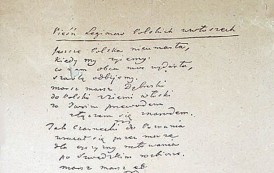 Pieśń Legionów Polskich we Włoszech
Jeszcze Polska nieumarła,
kiedy my żyjemy.
co nam obca moc wydarła,
szablą odbijemy.
marsz marsz
do Polski z ziemi włoski
za Twoim przewodem
złączem się z narodem.
Jak Czarnecki do Poznania
wracał się przez morze
dla ojczyzny ratowania
po szwedzkim rozbiorze.
marsz marsz